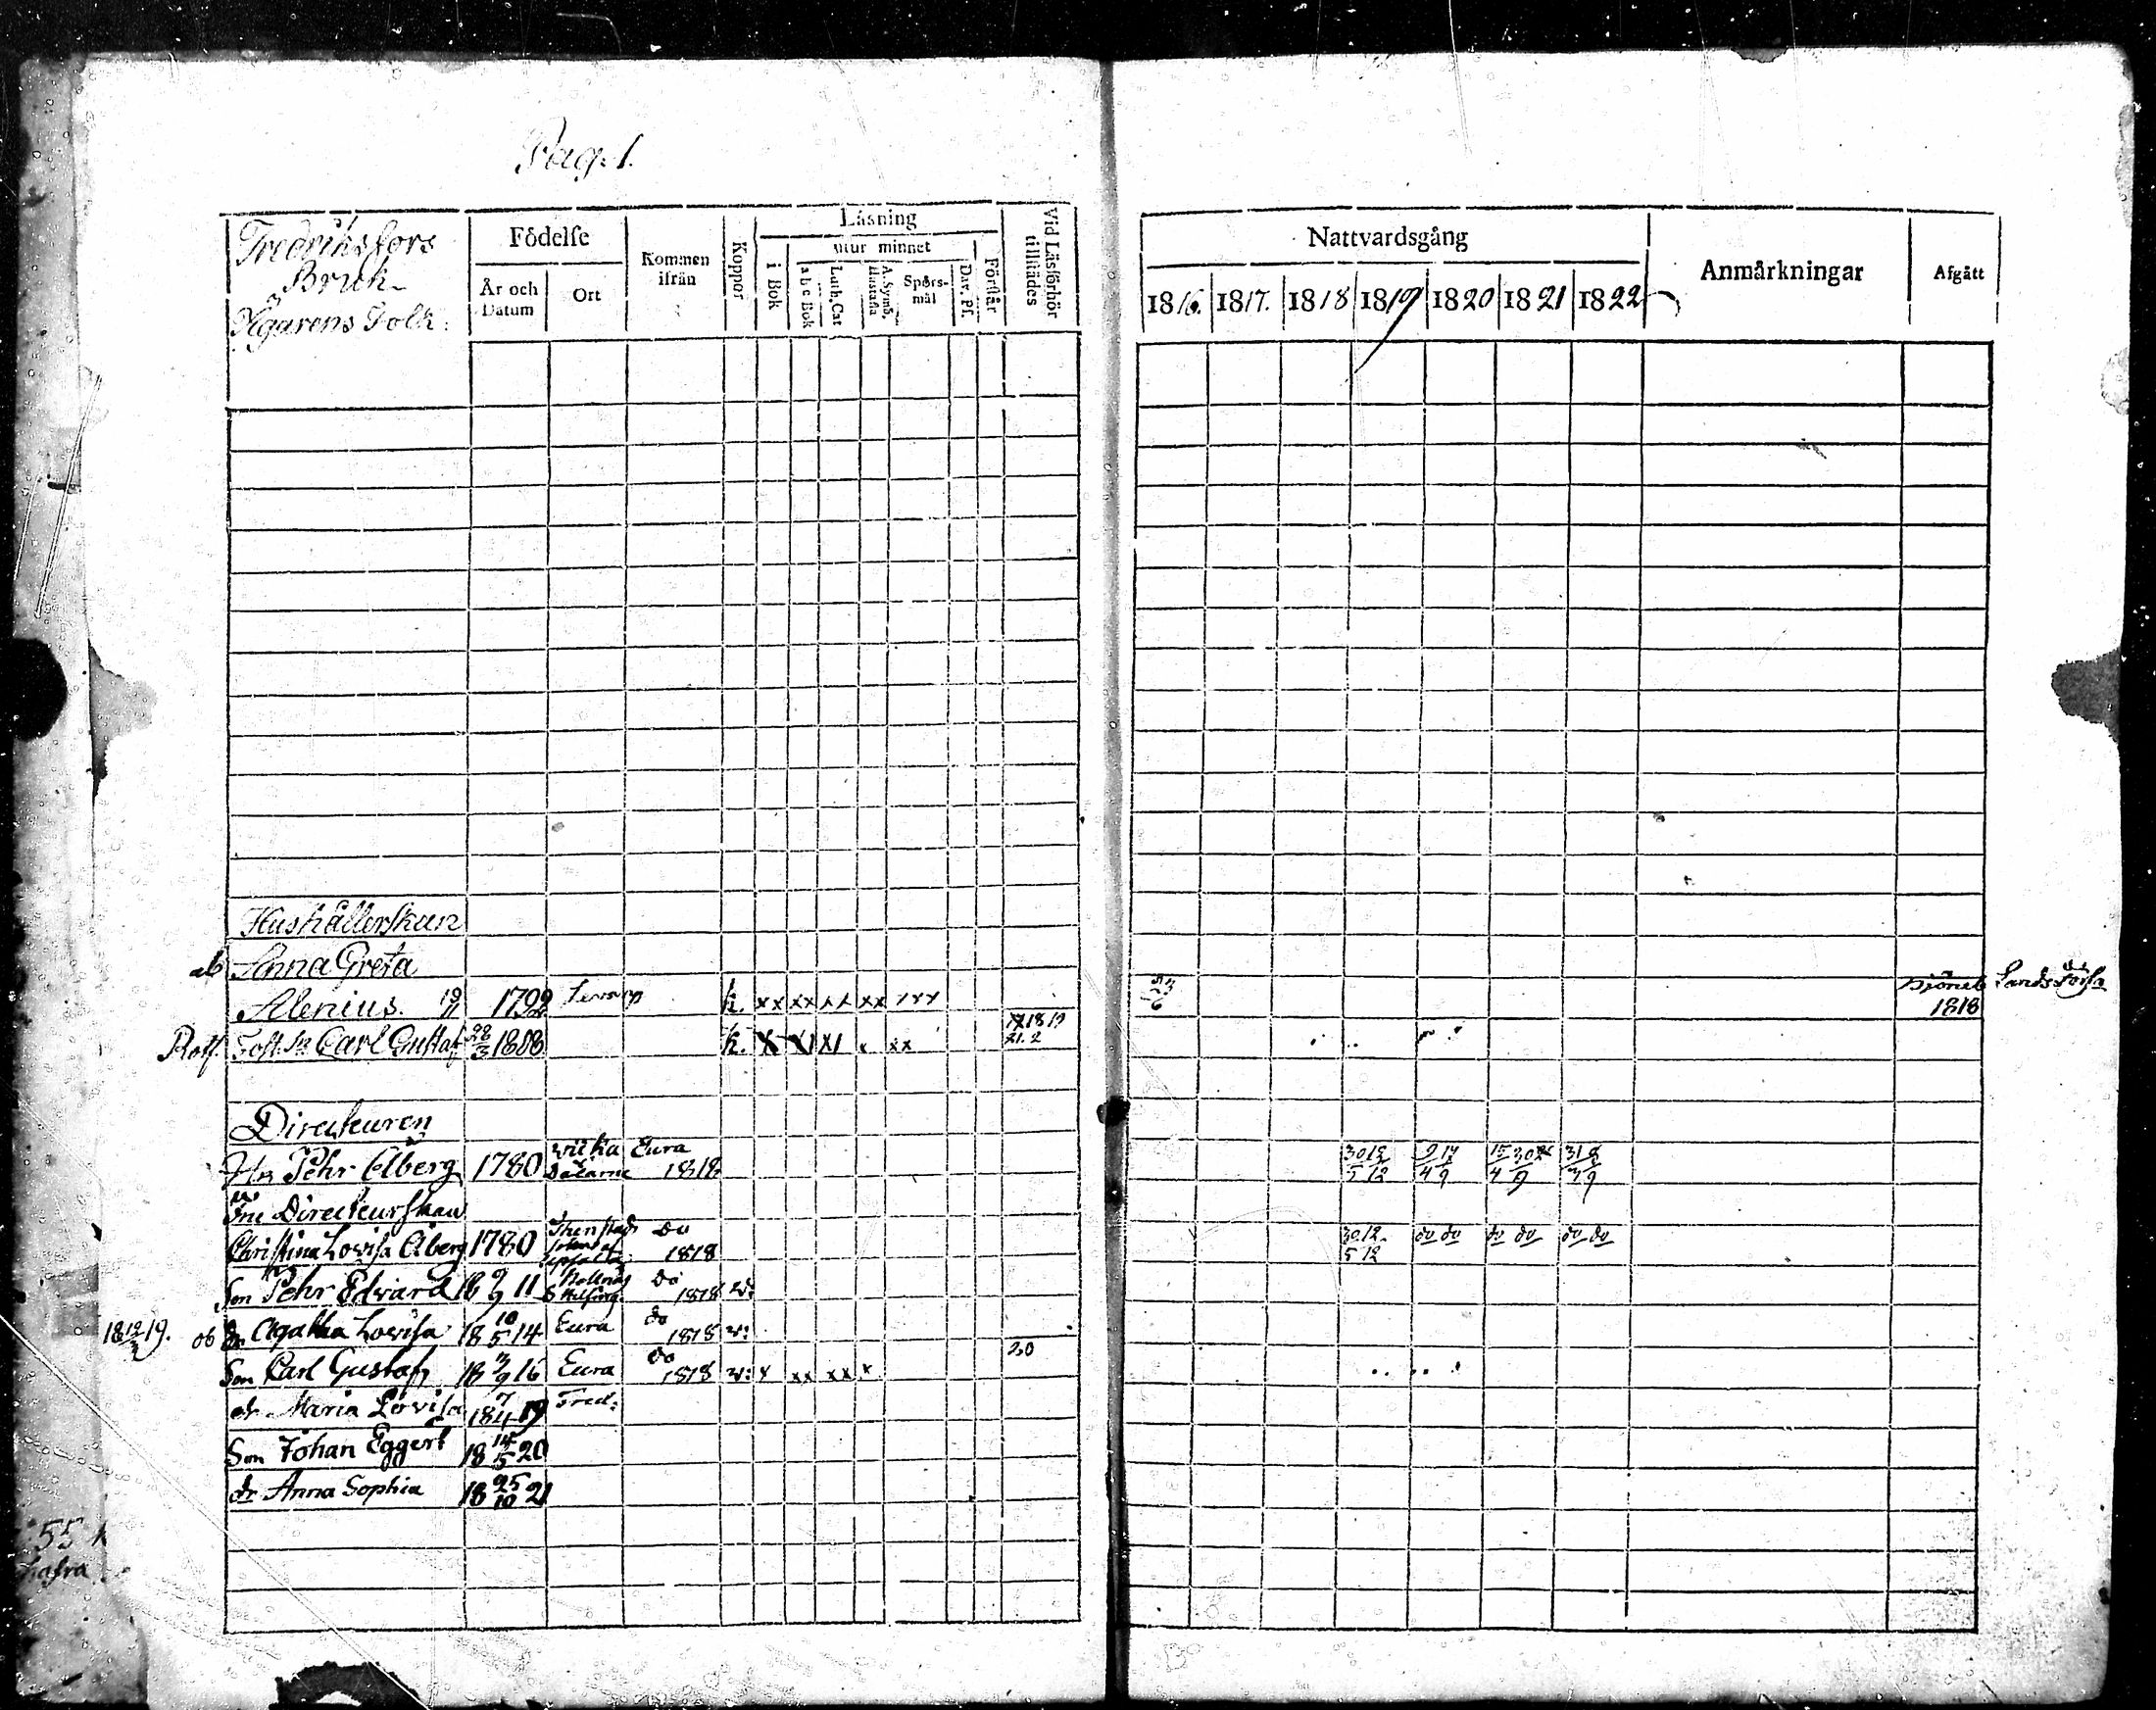 Pag. 1.
Fredrihsfors
Bruk
Ägarens Folk:
Födelse
År och Datum
Ort
Kommen ifrån
Koppor
Läsning
i Bok
utur minnet
a b c Bok
Luth. Cat
A. Symb. Hustafla
Spörs-mål
Dav. Ps.
Förstår
Vid Läsförhör tillstädes
Nattvardsgång
1816. 1817. 1818 1819 1820 1821 1822
Anmärkningar
Afgått
Hushållerskan
ab Anna Greta
Alenius. 19/11 1792 k. xx xx xx xx xxx 23/6 Björneb Lands
1818
Fost. Sn Carl Gustaf 28/3 1808 k. X XI XI x xx 1819
21. 2
Directeuren
Hr Pehr Åberg 1780 Dalarne Eura 1818 30/5 12/12 9/4 17/9 15/4 30/9 31/3 8/9
Fru Directeurskan
Christina Lovisa Åberg 1780 Upsala Do 1818 30/5 12/12 do do do do do do
Son Pehr Edvard 18 9/9 11 Do 1818 v:
1819. ob dr Agatha Lovisa 18 10/5 14 Eura do 1818 v:
Son Carl Gustaf 18 3/9 16 Eura do 1818 v: x xx xx x 20
dr Maria Lovisa 18 7/4 19 Fred:
Son Johan Eggert 18 14/5 20
dr Anna Sophia 18 25/10 21
55
hafra